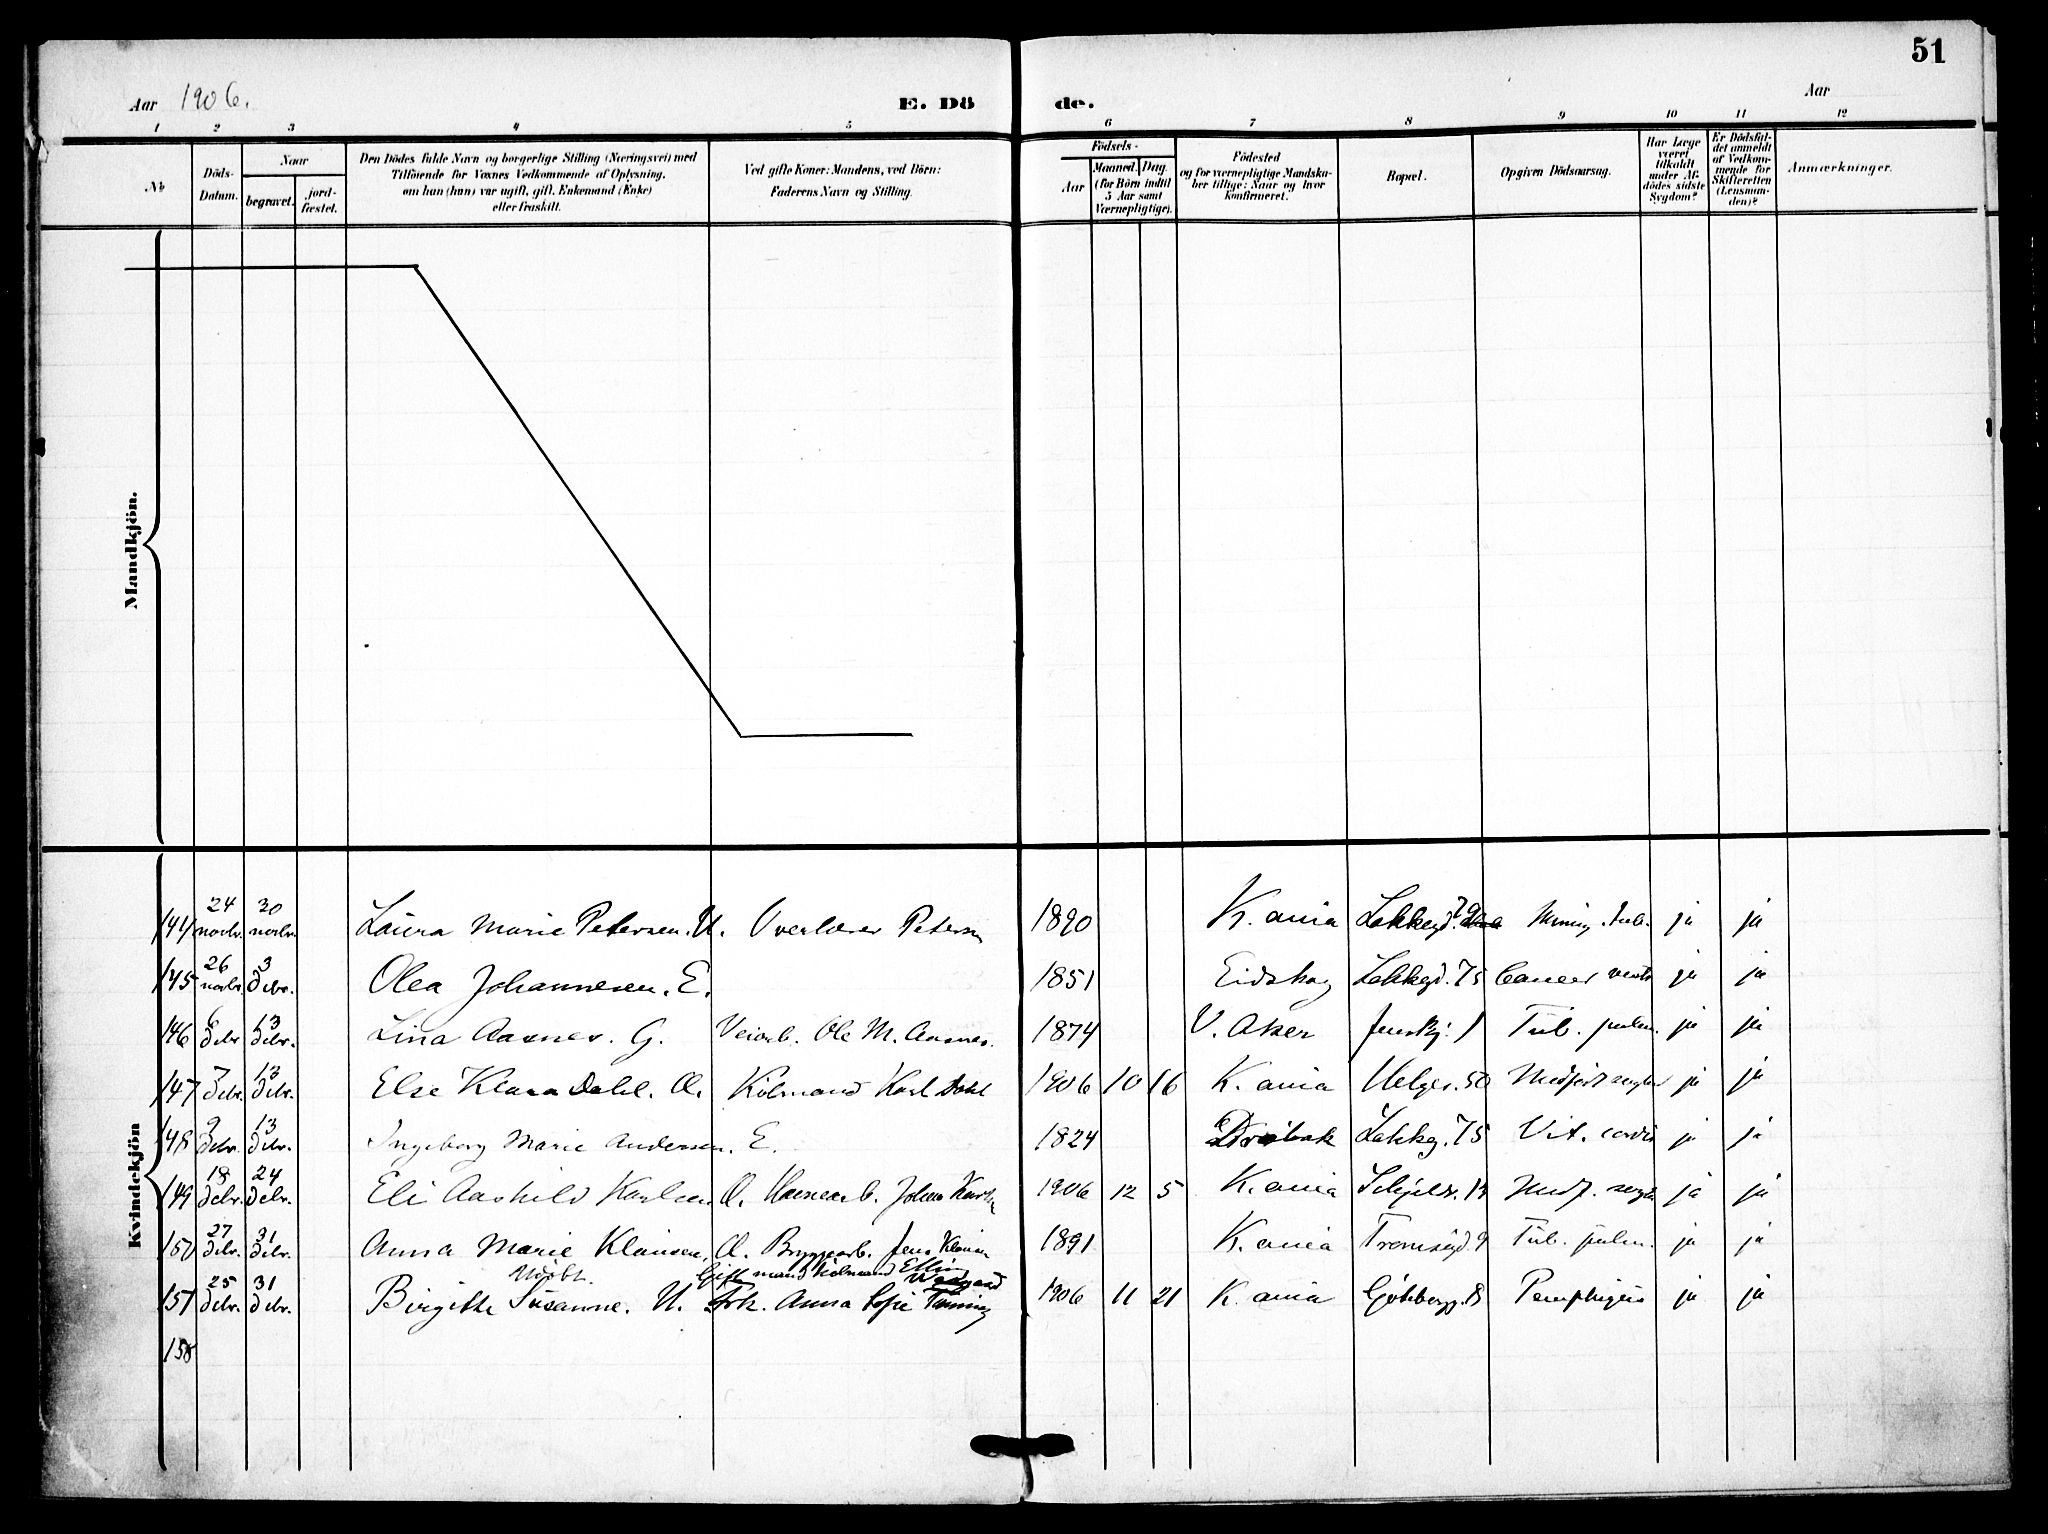 51
Aar 1906.
E. Dö de.
Aar
1 2 3 4 5 6 7 8 9 10 11 12
No
Döds-Datum.
Naar
begravet.
jord-fæstet.
Den Dödes fulde Navn og borgerlige Stilling (Næringsvei) med
Tilföiende for Voxnes Vedkommende af Oplysning,
om han (hun) var ugift, gift, Enkemand (Enke)
eller fraskilt.
Ved gifte Koner: Mandens, ved Börn:
Faderens Navn og Stilling.
Födsels-
Aar
Maaned. Dag.
(for Börn indtil
5 Aar samt
Værnepligtige).
Födested
og for værnepligtige Mandska-
ber tillige: Naar og hvor
konfirmeret.
Bopæl.
Opgiven Dödsaarsag.
Har Læge
været
tilkaldt
under Af-
dödes sidste
Sygdom?
Er Dödsfal-
det anmeldt
af Vedkom-
mende for
Skifteretten
(Lensman-
den)?
Anmærkninger.
Mandkjön.
Kvindekjön
24 30
novbr. novbr. Laura Marie Petersen. U. Overlærer Petersen 1890 K.ania Lakkegd. ja ja
145 26 novbr. 3 debr. Olea Johannesen. E. 1851 Eidskog Lakkegd. 75 Cancer ventr ja ja
146 6 debr. 13 debr. Lina Aasnes. G. Veiarb. Ole M. Aasnes. 1874 V. Aker 1 Tub. pulm. ja ja
147 7 debr. 13 debr. Else Klara Dahl. Æ. Kölmand Karl Dahl 1906 10 16 K.ania Helges. 50 ja ja
148 9 debr. 13 debr. Ingeborg Marie Andersen. E. 1824 Dröbak Lakkeg. 75 Vit. cordis ja ja
149 18 debr. 24 debr. Eli Aashild Karlsen Æ. Johan 1906 12 5 K.ania ja ja
150 27 debr. 31 debr. Anna Marie Klausen. Æ. Bryggearb. Jens Klausen 1891 K.ania Tromsögd. 9 Tub. pulm. ja ja
Gift mand
151 25 debr. 31 debr. Birgitte Susanne. U. Frk. Anna Sofie 1906 11 21 K.ania Pemphigus ja ja
158